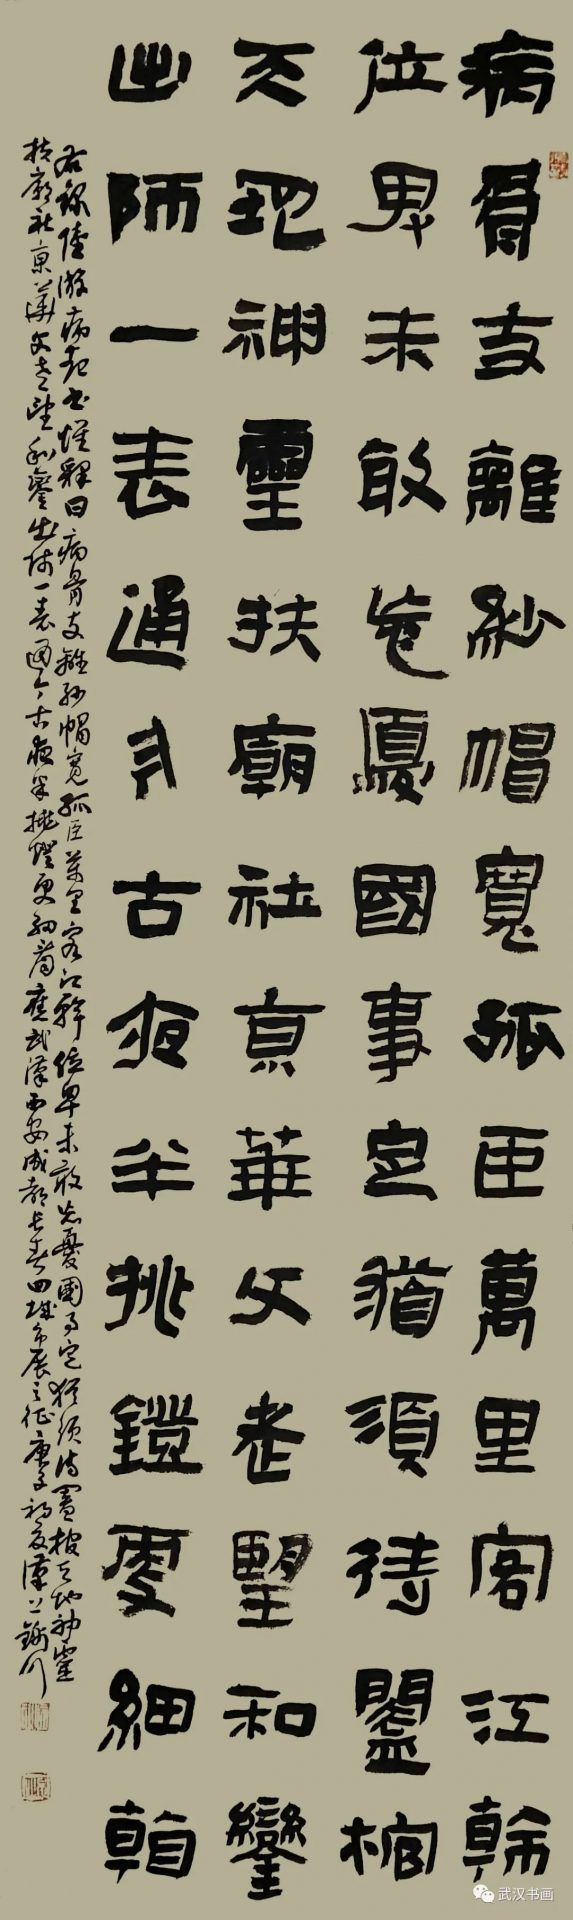 病骨支離紗帽寬孤臣萬里客江幹
位卑未敢忘憂國事定猶須待闔棺
天地神靈扶廟社京華父老望和鑾
出師一表通今古夜半挑鐙更細看
右錄陸游病起書懷釋曰病骨支離紗帽寬孤臣萬里客江幹位卑未敢忘憂國事定猶須待闔棺天地神靈
扶廟社京華父老望和鑾出師一表通今古夜半挑燈更細看應武漢西安成都長春四城市展之征庚子初夏漢上
武汉书画